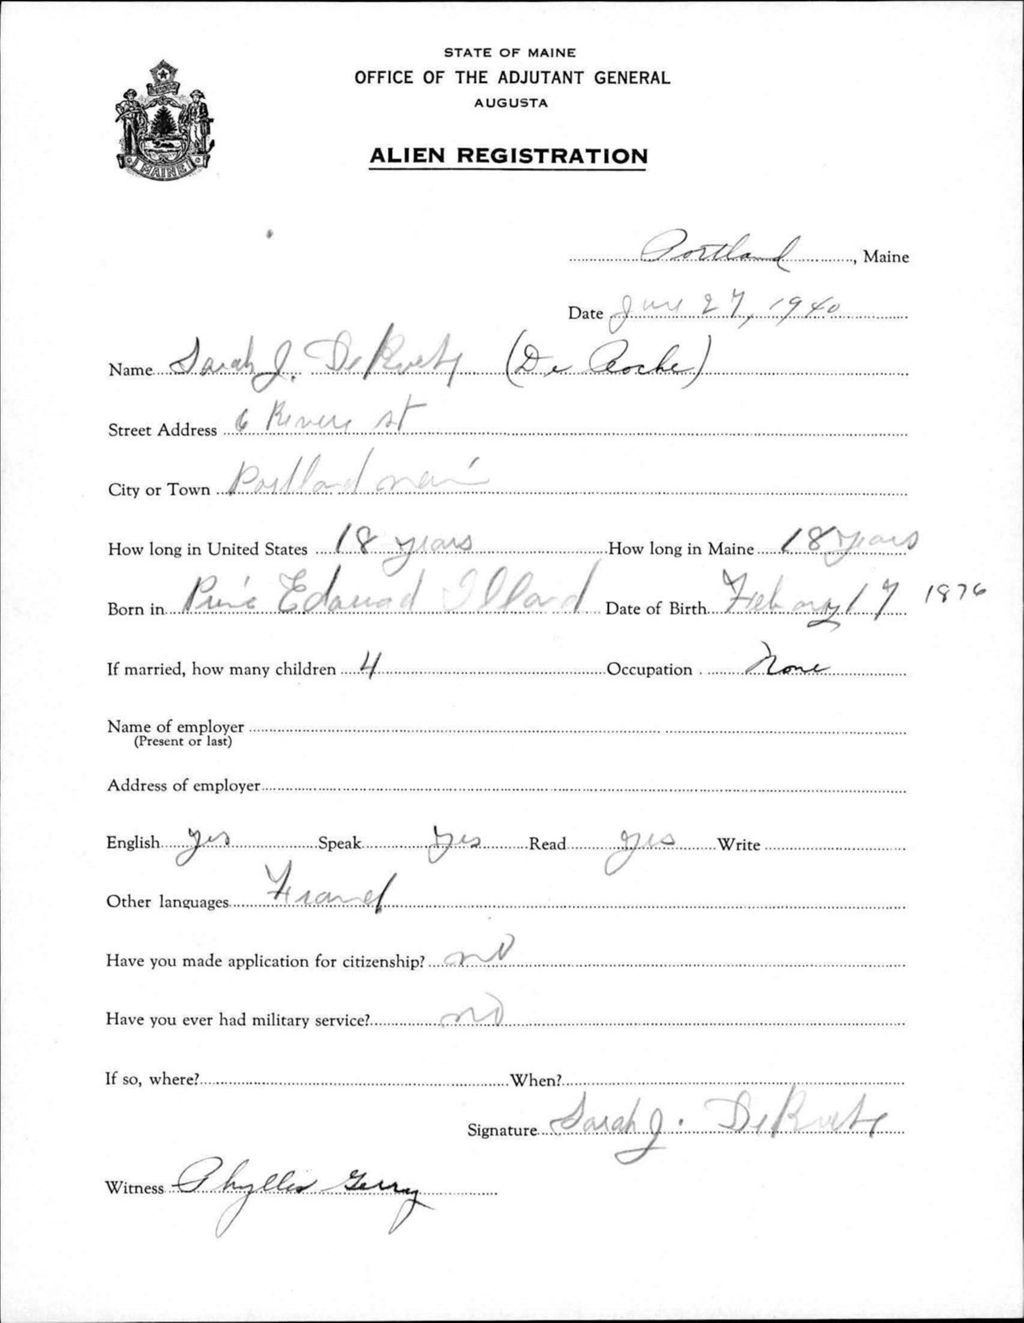 STATE OF MAINE
OFFICE OF THE ADJUTANT GENERAL
AUGUSTA
ALIEN REGISTRATION
MAINE
Portland, Maine
Date June 27, 1940
Name Sarah J. (De Roche)
Street Address 6 Revere st
City or Town Portland
How long in United States 18 years How long in Maine 18 years
Born in Edward Date of Birth 17 1876
If married, how many children 4 Occupation None
Name of employer
(Present or last)
Address of employer
English yes Speak yes Read yes Write
Other languages
Have you made application for citizenship? no
Have you ever had military service? no
If so, where? When?
Signature Sarah J.
Witness Phyllis Gerry